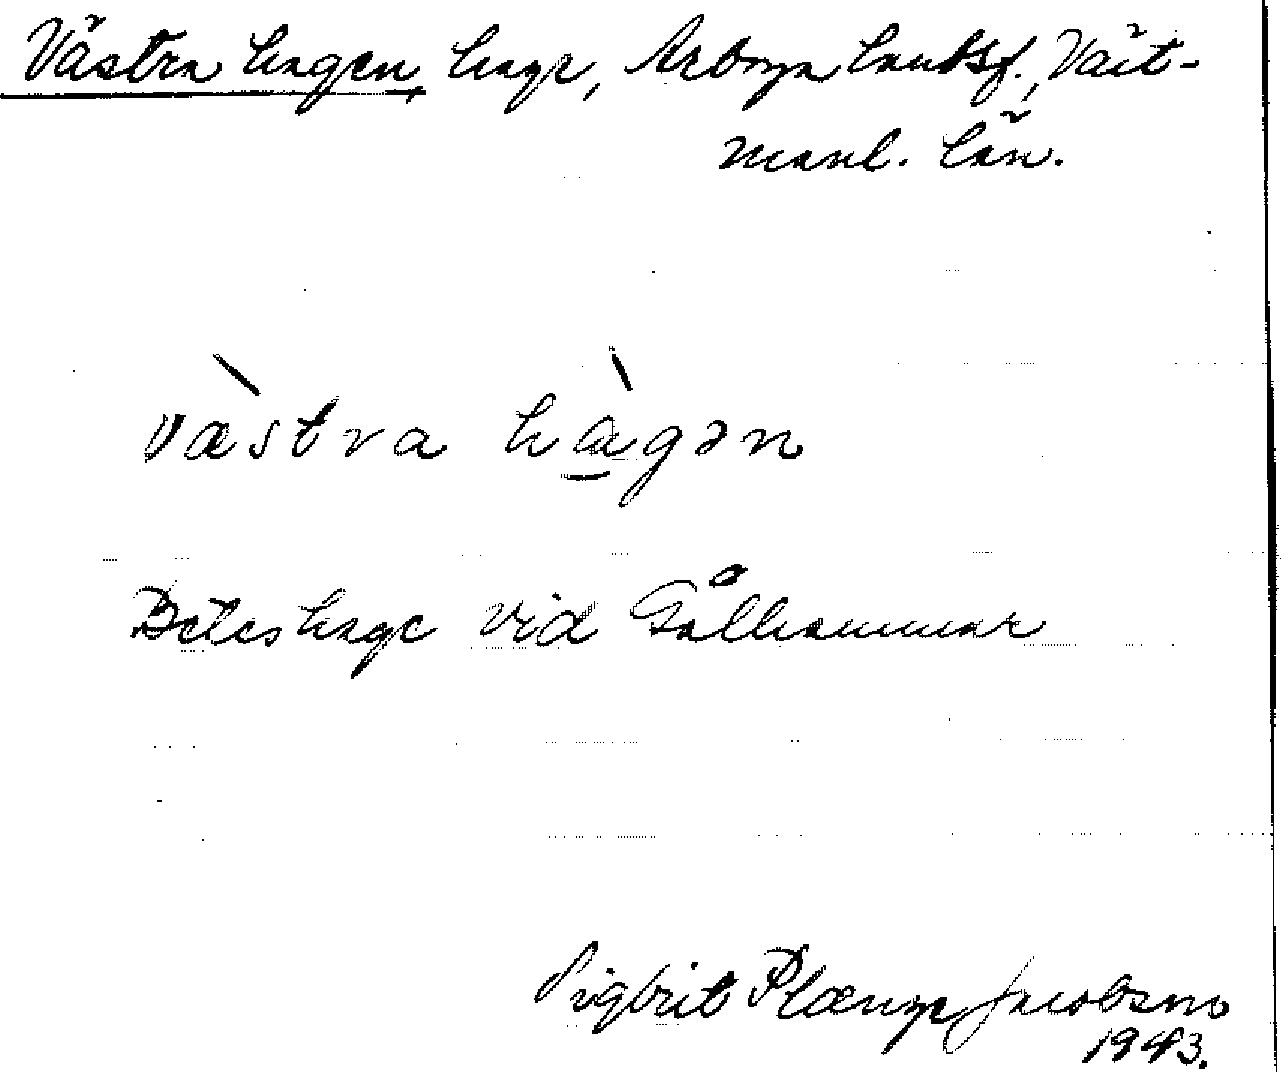 Västra hagen, hage, Arboga landsf., Väst-
manl. län.
væ̀stra hà̱gən
Beteshage vid Gålhammar
Sigbrit Plænge Jacobson
1943.